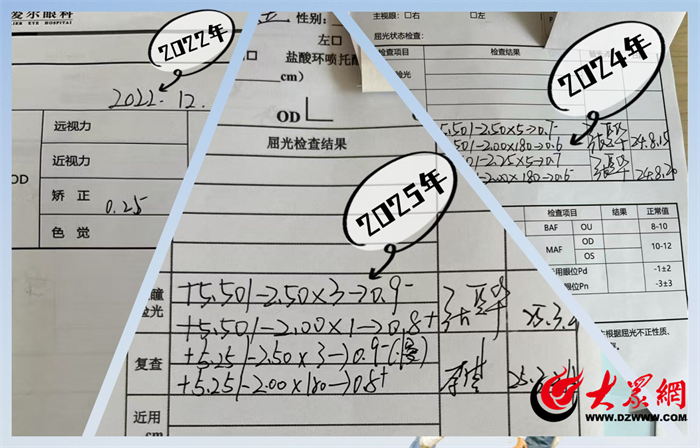 爱尔眼科
2022年
2022.12.
远视力
近视力
OD
矫正
0.25
色觉
性别:
左□
盐酸环喷托酯
cm)
OD
屈光检查结果
2025年
瞳
验光
+5.50/-2.50×3→0.9-
+5.50/-2.00×1→0.8+
复查
+5.25/-2.50×3→0.9-
+5.25/-2.00×180→0.8+
近用
cm
主视眼: □右 □左
屈光状态检查:
检查项目 检查结果
验光
2024年
5.50/-2.50×5→0.7-
5.50/-2.00×180→0.6
24.8.15
-2.25×5→0.7
-2.00×180→0.6-
24.8.20
检查项目 结果 正常值
BAF OU 8-10
MAF OD 10-12
OS
用眼位Pd -1±2
眼位Pn -3±3
根据屈光不正性质、
大众網
WWW.DZWWW.COM